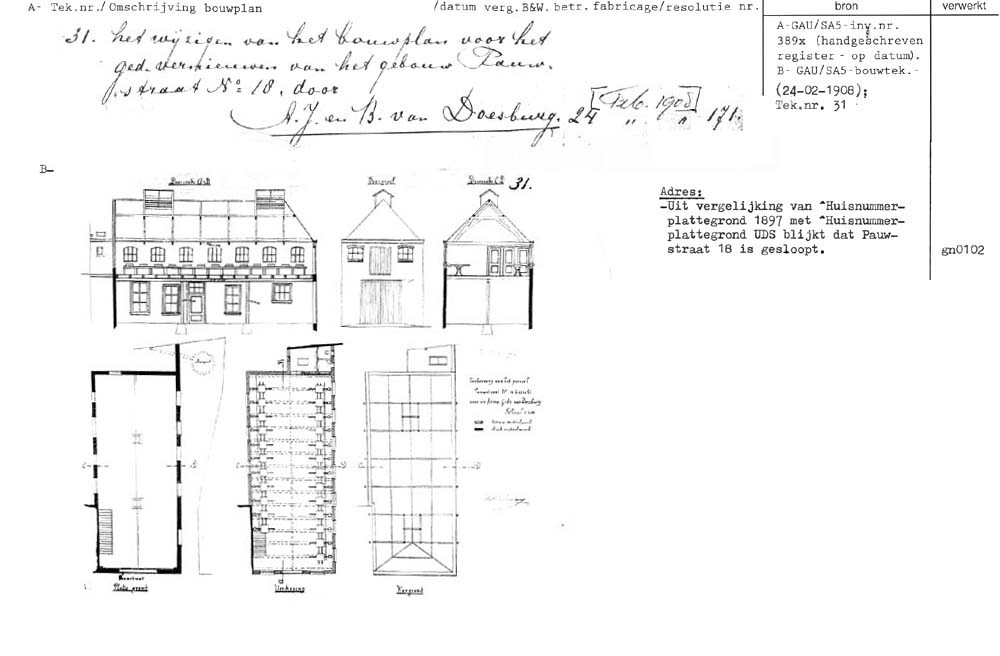 A- Tek.nr./Omschrijving bouwplan
/datum verg.B&W. betr. fabricage/resolutie nr.
bron
verwerkt
31. het wijzigen van het bouwplan voor het
ged. vernieuwen van het gebouw Pauw-
straat No 18, door
A. J. en B. van Doesburg. 24 [Feb. 1908] 171.
" "
A-GAU/SA5-inv.nr.
389x (handgeschreven
register - op datum).
B- GAU/SA5-bouwtek.-
(24-02-1908);
Tek.nr. 31
B-
Doorsnede A-B
Doorsnede C D
31.
Adres:
-Uit vergelijking van ^Huisnummer-
plattegrond 1897 met ^Huisnummer-
plattegrond UDS blijkt dat Pauw-
straat 18 is gesloopt.
gn0102
Verdieping